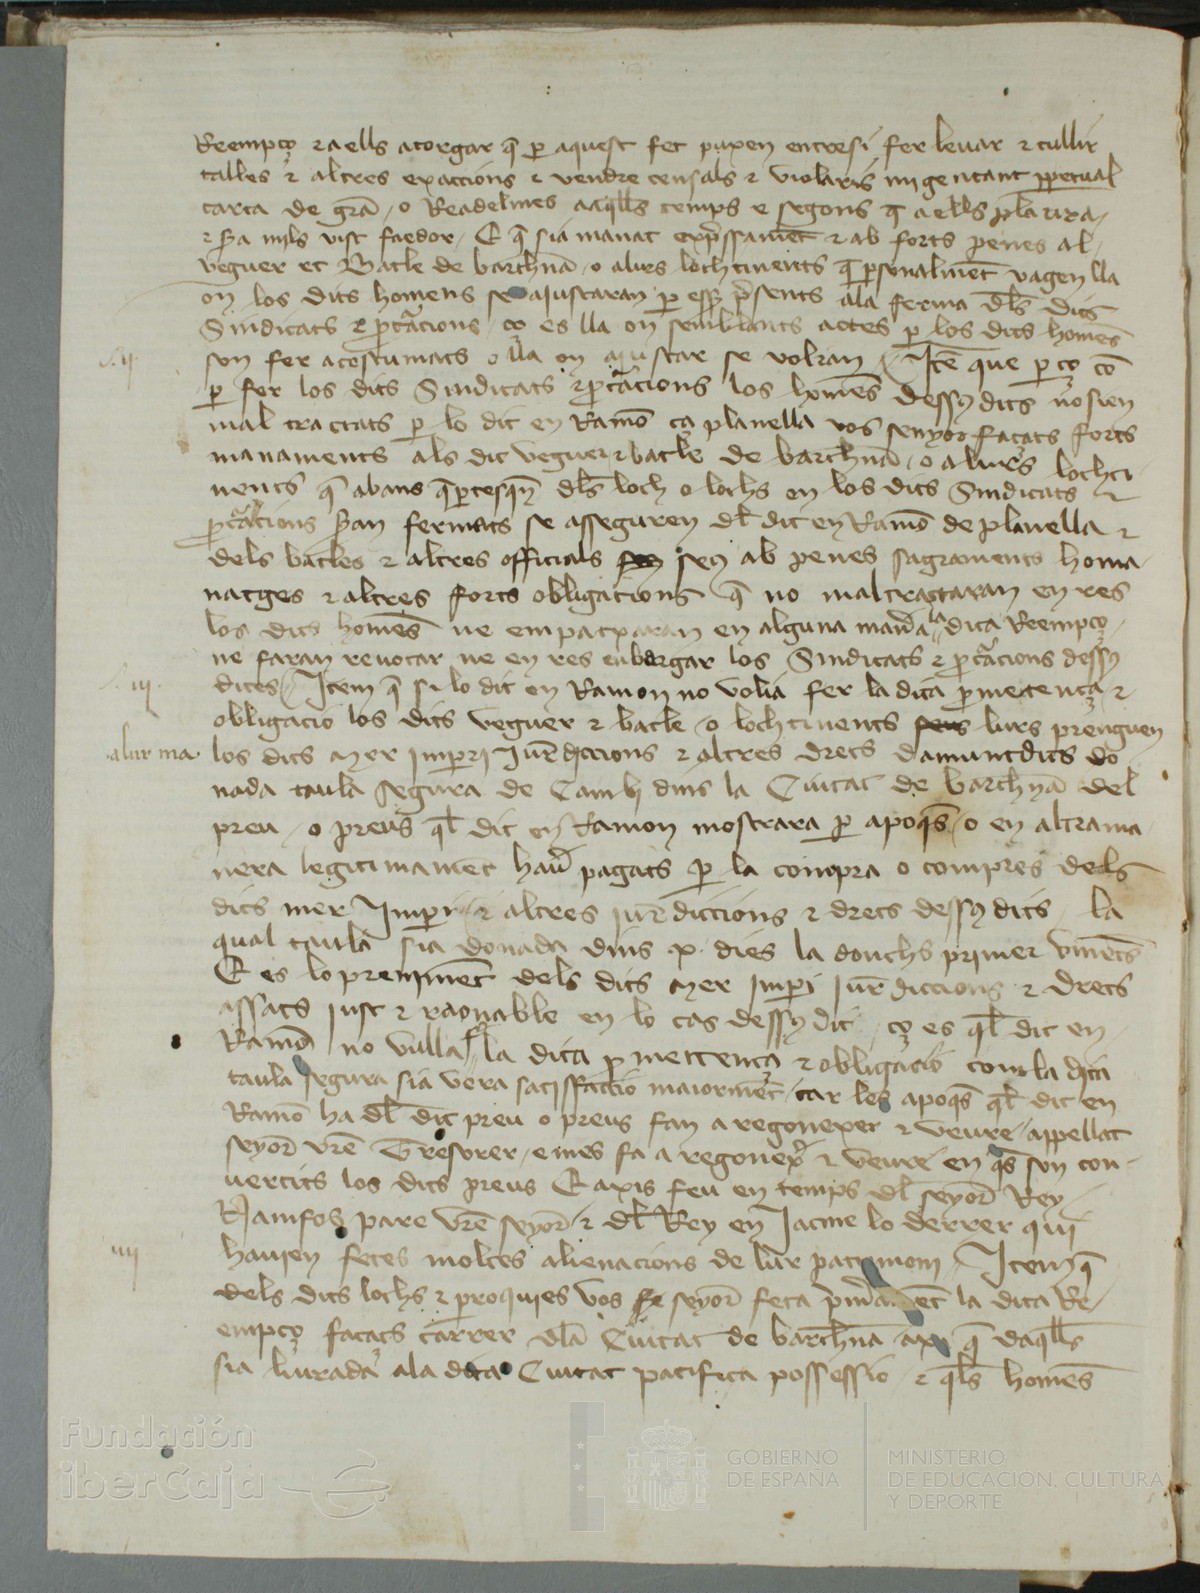 Reempço & a ells atorgar q̃ p aquest fet puxen entresi fer levar & cullir
talles & altres exaccions & vendre censals & violaris migençant ppetual
carta de grã o Readelmes aaq̃lls temps e segons q̃ a ells plaura
& ẜa mjls vist faedor E q̃ sia manat exp̃ssament & ab forts penes al
veguer et Batle de barchña o alurs lochtinents q̃ psonalment vagen lla
on los dits homens se aiustaran p esser p̃sents ala ferma dls̃ dits
Sindicats & p̃curacions ço es lla on semblants actes p los dits homẽs
son fer acostumats o lla on aiustar se volran Itẽ que p ço cõ
.ii.
p fer los dits Sindicats & p̃curacions los homẽs dessus dits no sien
mal tractats p lo dit en Ramõ ça planella vos senyor façats forts
manaments als dit veguer & batle de barchña o alurs lochti
nents q̃ abans q̃ ptesquen dls̃ loch o lochs en los dits Sindicats &
p̃curacions ẜan fermats se asseguren dl̃ dit en Ramõ de planella &
dels batles & altres officials seus ab penes sagraments homa
natges & altres forts obligacions q̃ no maltractaran en res
los dits homẽs ne empatxaran en alguna mañra la dita Reempço
ne faran revocar ne en res enbargar los Sindicats & p̃curacions dessus
.iii.
dites Item q̃ si lo dit en Ramon no volia fer la dita pmetença &
obligacio los dits veguer & batle o lochtinents seus lurs prenguen
alur ma
los dits mer imperi Jurẽdiccions & altres drets damuntdits do
nada taula segura de Cambi dins la Ciutat de barchña del
preu o preus ql̃ dit en Ramon mostrara p apoq̃s o en altra ma
nera legitimament hav̄ pagats p la compra o compres dels
dits mer Imperi & altres jurẽdiccions & drets dessus dits la
qual taula sia donada dins x. dies la donchs primer vinẽts
E es lo preniment dels dits mer imperi jurẽdiccions & drets
assats just & raonable en lo cas dessus dit ço es ql̃ dit en
Ramõ no vulla fer la dita pmettença & obligacio com la dita
taula segura sia vera satisffaccio maiorment car les apoq̃s ql̃ dit en
Ramõ ha dl̃ dit preu o preus fan a regonexer & veure appellat
seyor vrẽ Tresorer e mes fa a regonex̃ & veure en q̃s son con
vertits los dits preus E axis feu en temps dl̃ seyor Rey
Namfos pare vrẽ seyor & dl̃ Rey en Jacme lo derrer qui
havien fetes moltes alienacions de lur patrimoni Item q̃
iiii
dels dits lochs & proquies vos seyor feta p̃mẽrament la dita Re
empço façats carrer dla Ciutat de barchña axi q̃ daq̃lls
sia liurada ala dita Ciutat pacifica possessio & q̃ls homẽs
Fundación
iberCaja
GOBIERNO
DE ESPAÑA
MINISTERIO
DE EDUCACIÓN, CULTURA
Y DEPORTE